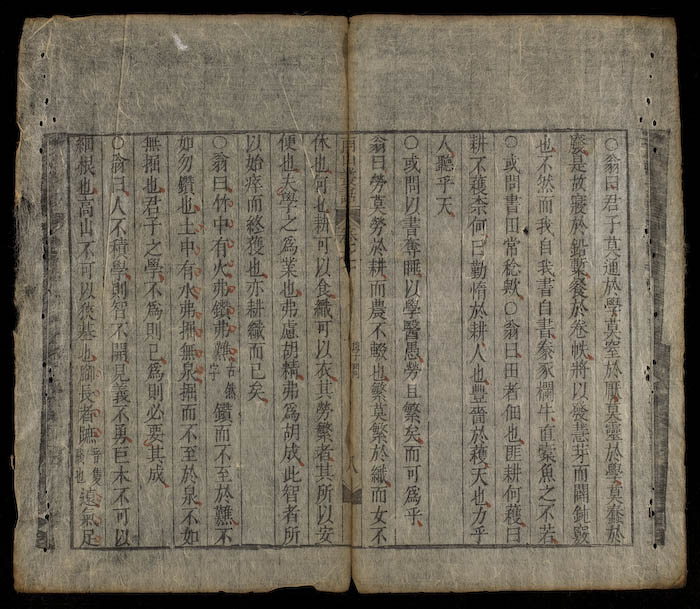 ○翁曰君子莫通於學莫窒於厭莫靈於學莫蠢於
是故寢於鉛槧餐於卷帙將以發慧芽而闢鈍竅
也不然而我自我書自書豢豕襴牛直蠹魚之不若
○或問書田常稔歟○翁曰田者佃也匪耕何穫曰
耕不穫柰何曰勤惰於耕人也豐嗇於穫天也力乎
人聽乎天
○或問以書奪睡以學醫愚勞且繁矣而可為乎
翁曰勞莫勞於耕而農不輟也繁莫繁於織而女不
休也何也耕可以食織可以衣其勞繁者其所以安
便也夫學之為業也弗慮胡精弗為胡成此智者所
以始瘁而終獲也亦耕織而已矣
○翁曰竹中有火弗鑽弗難古然字鑽而不至於難不
如勿鑽也土中有水弗掘無泉掘而不至於泉不如
無掘也君子之學不為則已為則必要其成
○翁曰人不積學則智不開見義不勇巨木不可以
細根也高山不可以狹基也腳長者音也遠氣足